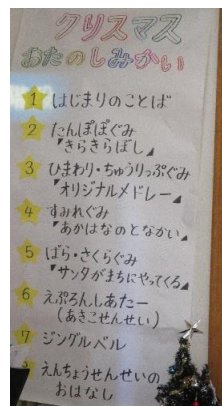 クリスマス
おたのしみかい
1 はじまりのことば
2 たんぽぽぐみ
『きらきらぼし』
3 ひまわり・ちゅうりっぷぐみ
『オリジナルメドレー』
4 すみれぐみ
『あかはなのとなかい』
5 ばら・さくらぐみ
『サンタがまちにやってくる』
6 えぷろんしあたー
(あきこせんせい)
7 ジングルベル
えんちょうせんせいの
おはなし